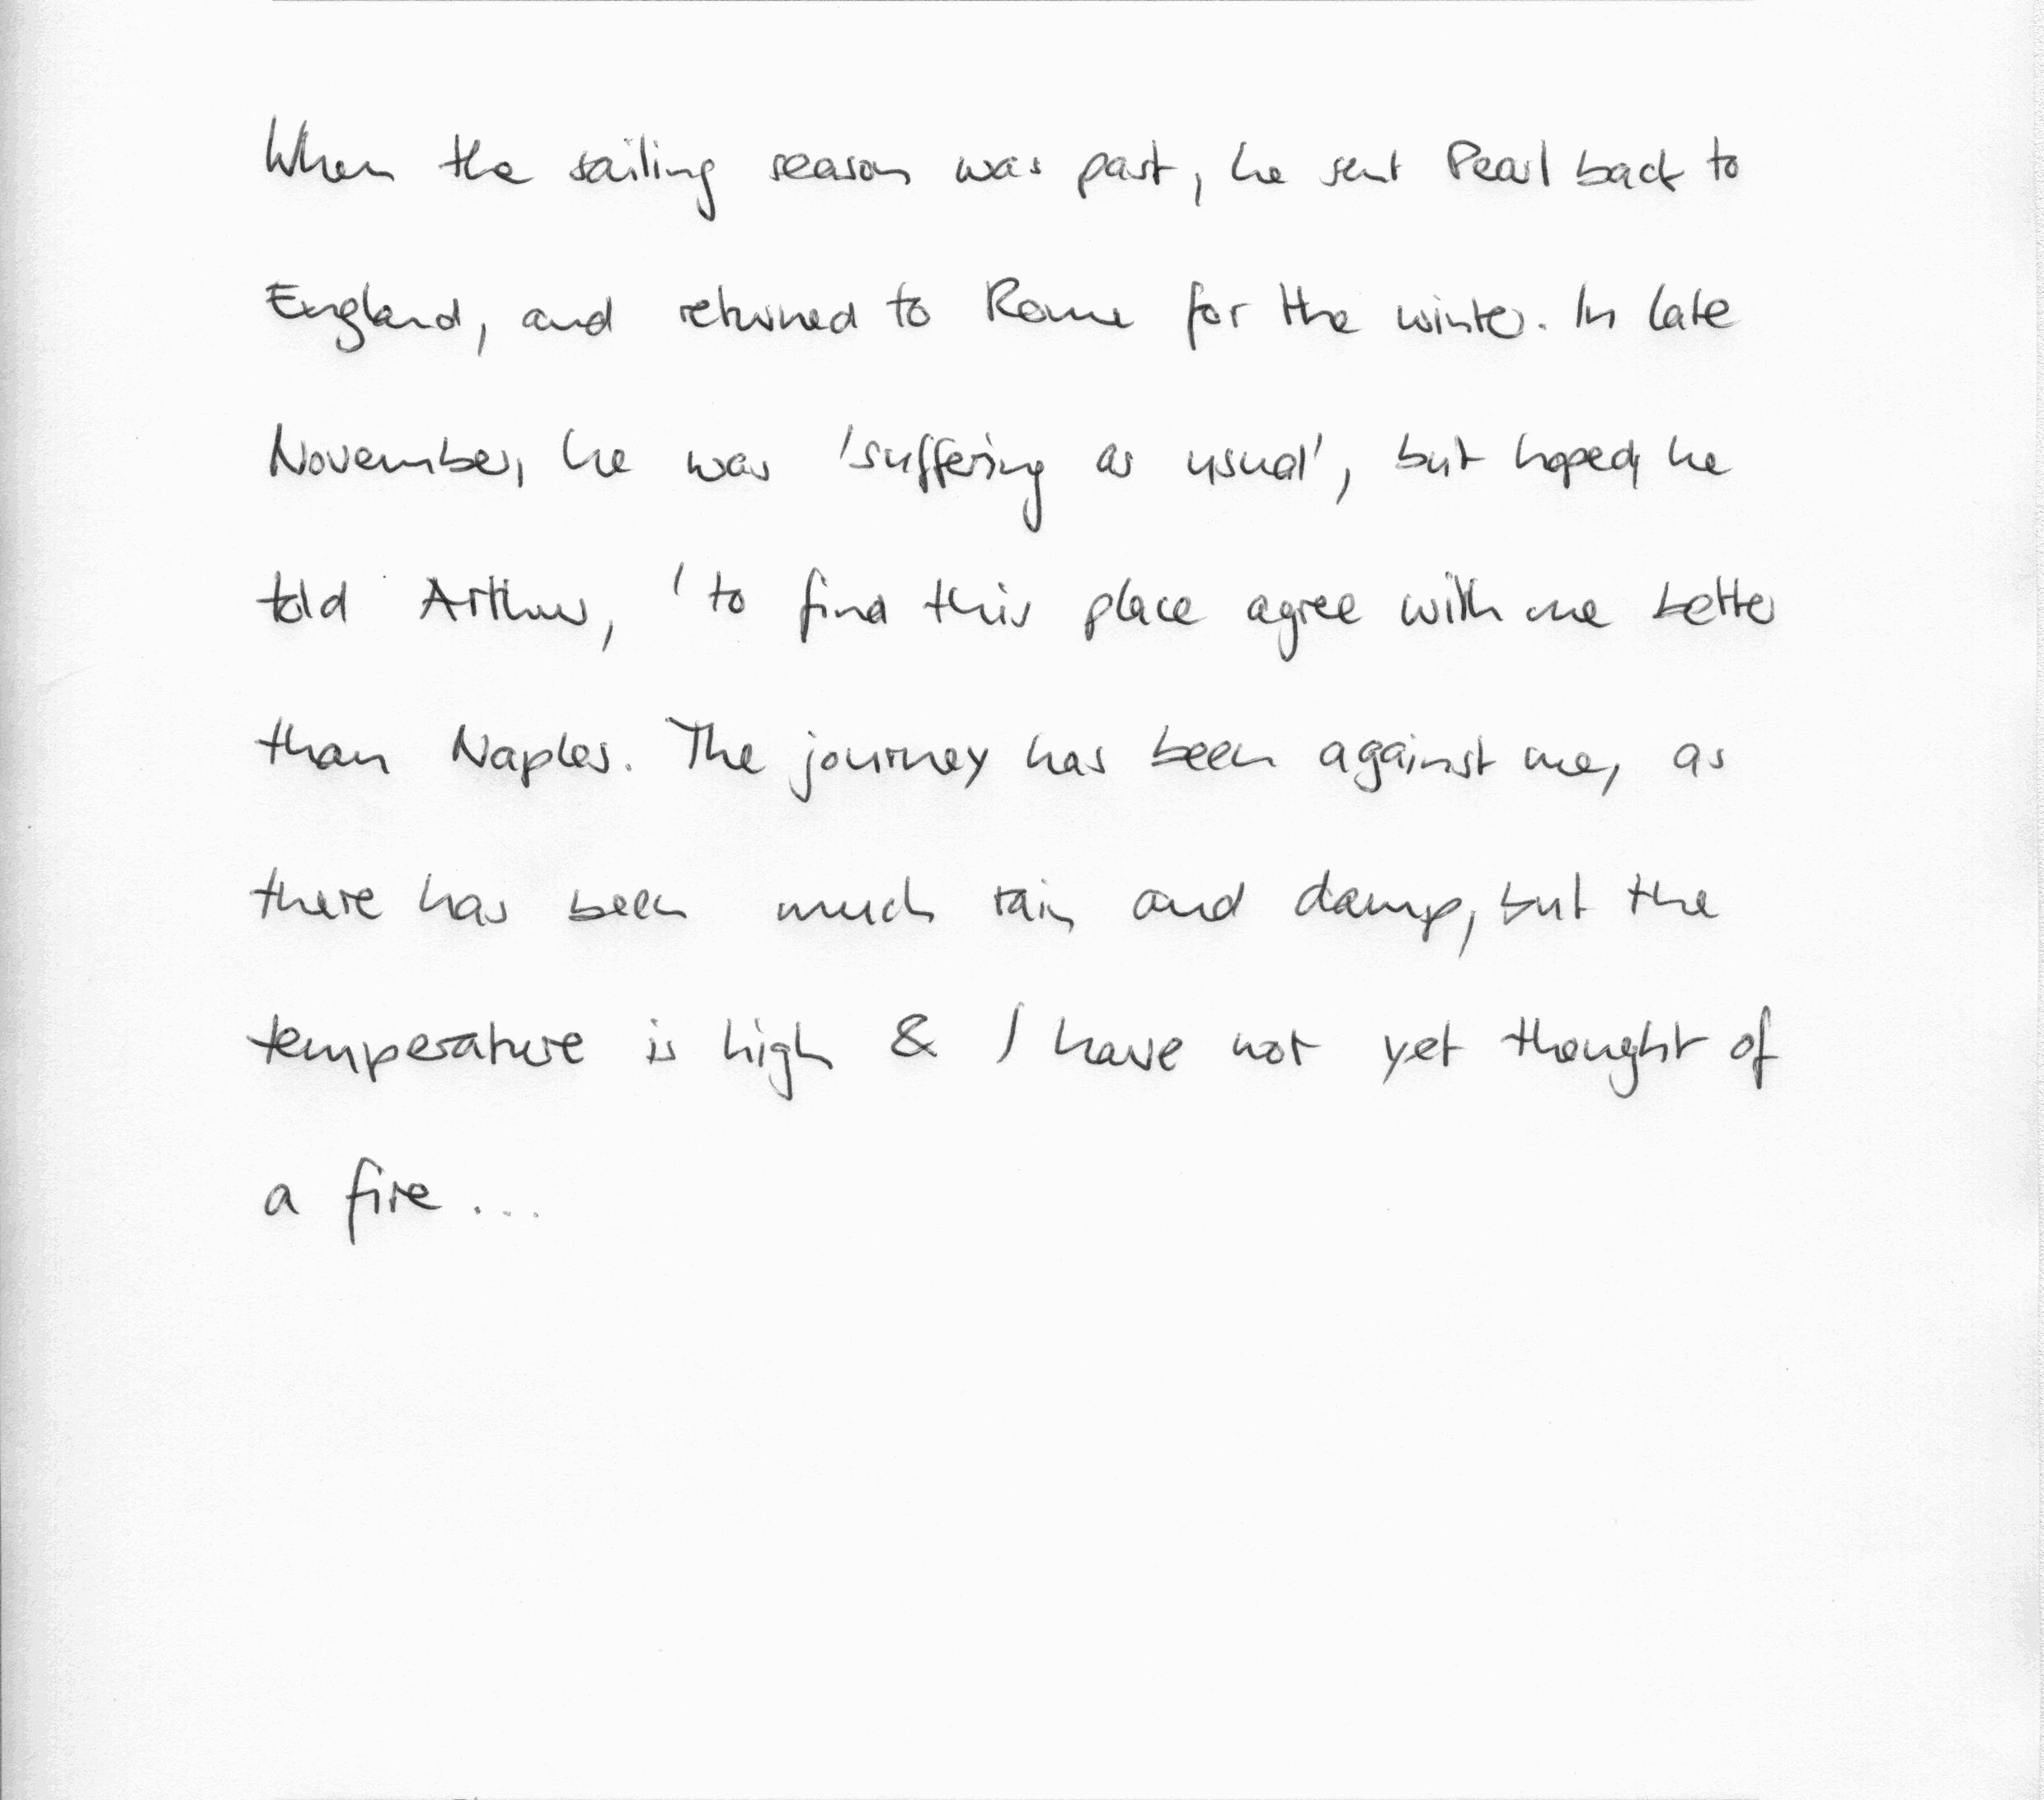 When the sailing season was past, he sent Pearl back to
England, and returned to Rome for the winter. In late
November, he was 'suffering as usual', but hoped, he
told Arthur, 'to find this place agree with me better
than Naples. The journey has been against me, as
there has been much rain and damp, but the
temperature is high & I have not yet thought of
a fire...